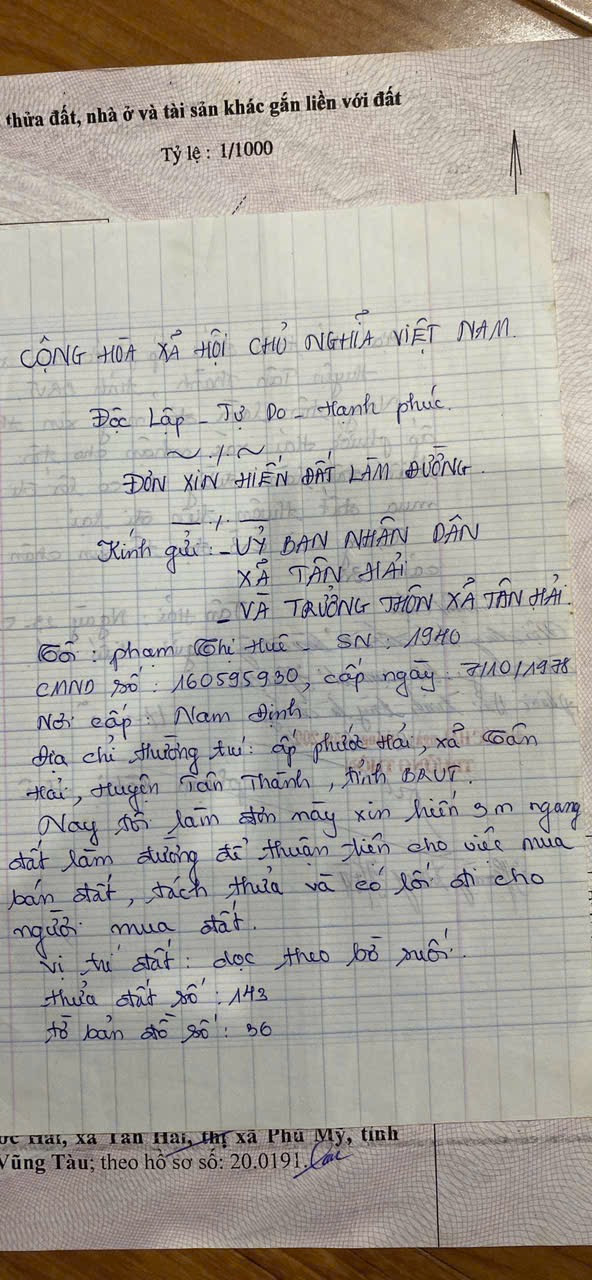 thửa đất, nhà ở và tài sản khác gắn liền với đất
Tỷ lệ : 1/1000
CỘNG HÒA XẢ HỘI CHỦ NGHĨA VIỆT NAM.
Độc Lập - Tự Do - Hạnh phúc.
~ ./. ~
ĐƠN XIN HIẾN ĐẤT LÀM ĐƯỜNG.
Kính gửi: - UỶ BAN NHÂN DÂN
XẢ TÂN HẢI
- VÀ TRƯỞNG THÔN XẢ TÂN HẢI.
Tôi : phạm Thị Huê - SN : 1940
CMND số : 160595930, cấp ngày : 7/10/1978
Nơi cấp : Nam Định
Địa chỉ thường trú: ấp phước Hải, xả Tân
Hải, Huyện Tân Thành, tỉnh BRVT.
Nay tôi làm đơn này xin hiến 3m ngang
đất làm đường để thuận tiện cho việc mua
bán đất, tách thửa và có lối đi cho
người mua đất.
vị trí đất : dọc theo bờ suối.
thửa đất số : 143
tờ bản đồ số : 36
ớc Hải, xã Tân Hải, thị xã Phú Mỹ, tỉnh
Vũng Tàu; theo hồ sơ số: 20.0191.